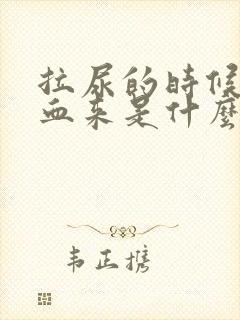 拉尿的时候
血来是什麼
韦正携